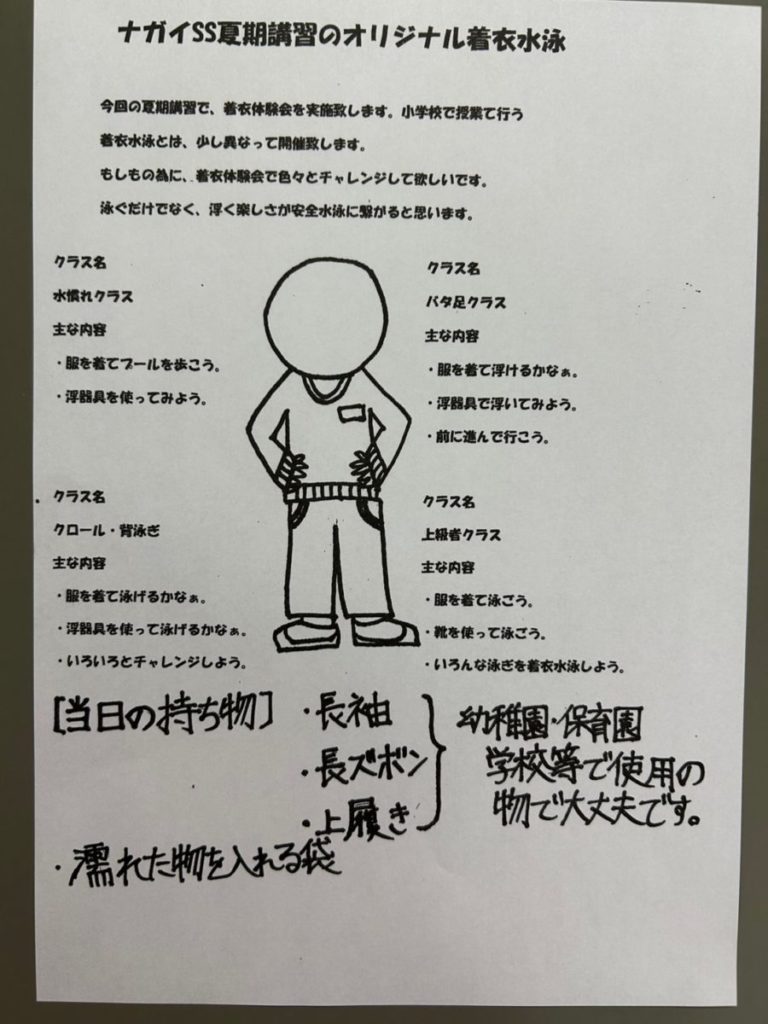 ナガイSS夏期講習のオリジナル着衣水泳
今回の夏期講習で、着衣体験会を実施致します。小学校で授業で行う
着衣水泳とは、少し異なって開催致します。
もしもの為に、着衣体験会で色々とチャレンジして欲しいです。
泳ぐだけでなく、浮く楽しさが安全水泳に繋がると思います。
クラス名
水慣れクラス
主な内容
・服を着てプールを歩こう。
・浮器具を使ってみよう。
クラス名
バタ足クラス
主な内容
・服を着て浮けるかなぁ。
・浮器具で浮いてみよう。
・前に進んで行こう。
クラス名
クロール・背泳ぎ
主な内容
・服を着て泳げるかなぁ。
・浮器具を使って泳げるかなぁ。
・いろいろとチャレンジしよう。
クラス名
上級者クラス
主な内容
・服を着て泳ごう。
・靴を使って泳ごう。
・いろんな泳ぎを着衣水泳しよう。
[当日の持ち物]
・長袖
・長ズボン
・上履き
幼稚園・保育園
学校等で使用の
物で大丈夫です。
・濡れた物を入れる袋